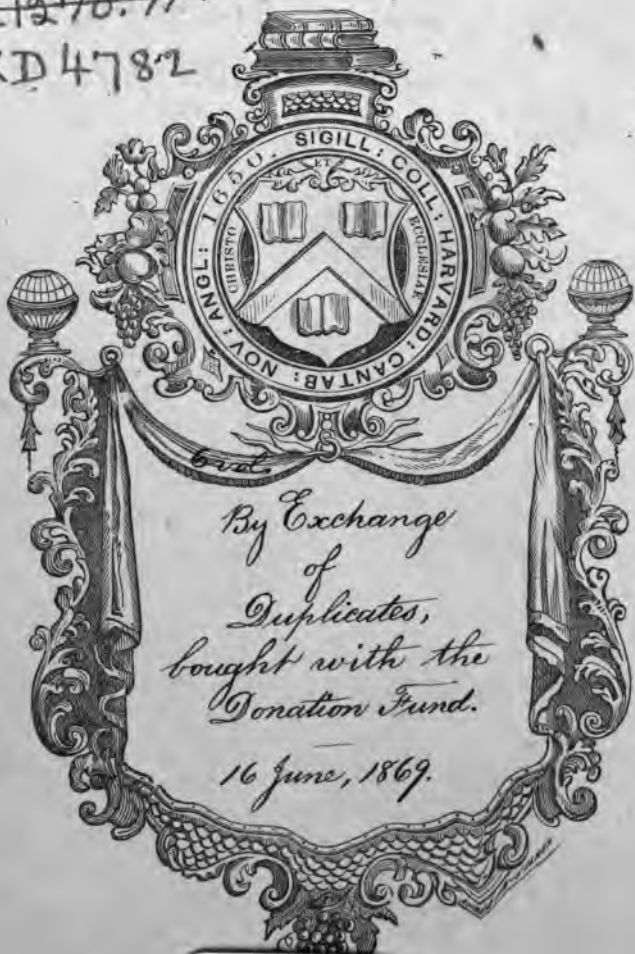 KD 4782
SIGILL: COLL: HARVARD: CANTAB: NOV: ANGL: 1650.
ET
CHRISTO
ECCLESIAE
6 vol.
By Exchange
of
Duplicates,
bought with the
Donation Fund.
16 June, 1869.